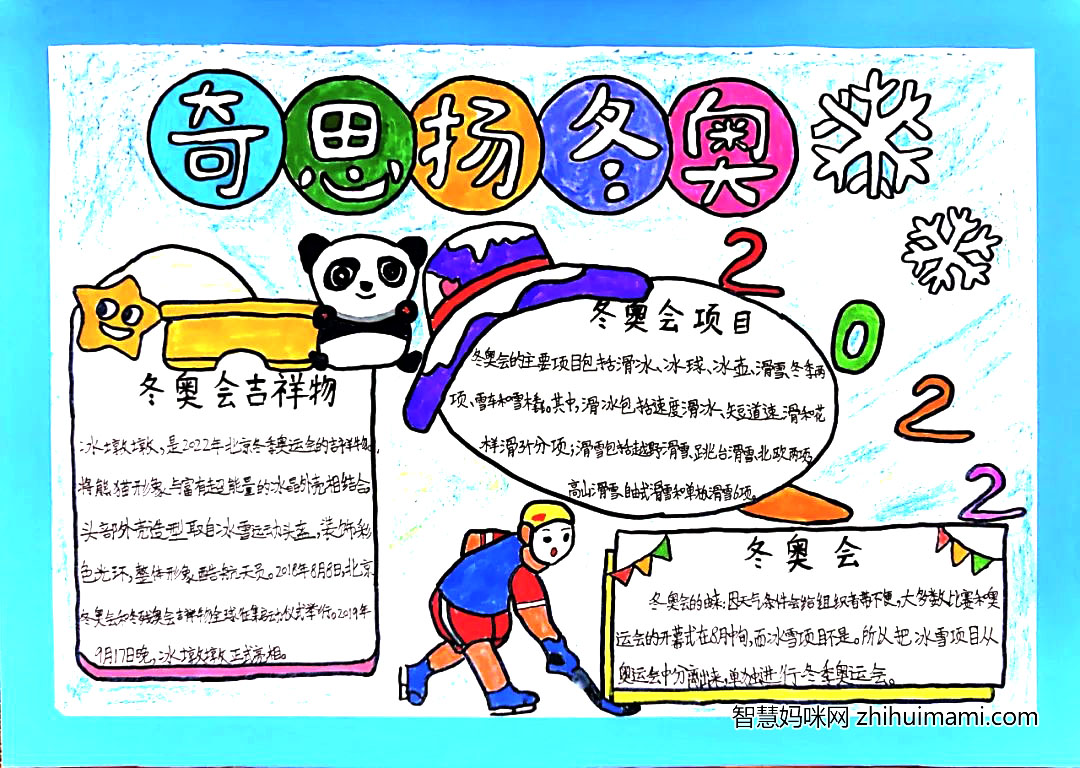 奇思扬冬奥
2022
冬奥会吉祥物
冰墩墩,是2022年北京冬季奥运会的吉祥物。
将熊猫形象与富有超能量的冰晶外壳相结合,
头部外壳造型取自冰雪运动头盔,装饰彩
色光环,整体形象酷似航天员。2018年8月8日,北京
冬奥会和冬残奥会吉祥物全球征集启动仪式举行。2019年
9月17日晚,冰墩墩正式亮相。
冬奥会项目
冬奥会的主要项目包括滑冰、冰球、冰壶、滑雪、冬季两
项、雪车和雪橇。其中,滑冰包括速度滑冰、短道速滑和花
样滑冰分项;滑雪包括越野滑雪、跳台滑雪、北欧两项,
高山滑雪、自由式滑雪和单板滑雪6项。
冬奥会
冬奥会的由来:因天气条件会给组织者带不便。大多数比赛和奥
运会的开幕式在8月中旬,而冰雪项目不是。所以把冰雪项目从
奥运会中分离出来,单独进行冬季奥运会。
智慧妈咪网 zhihuimami.com